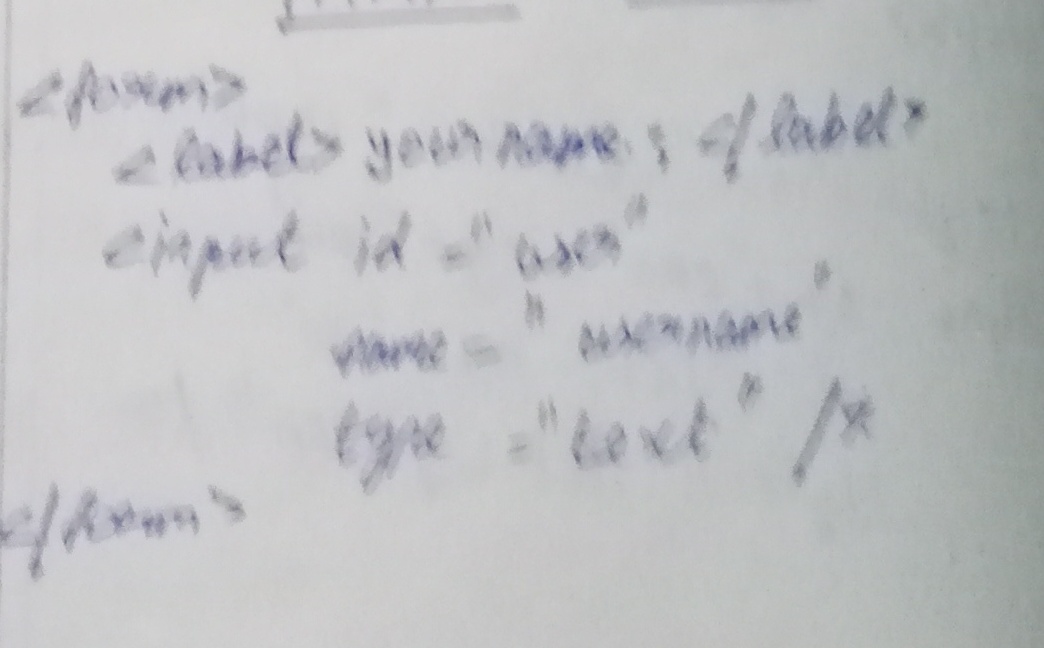 <form>
<label> your name : </label>
<input id = "user"
name = "username"
type = "text" />
</form>